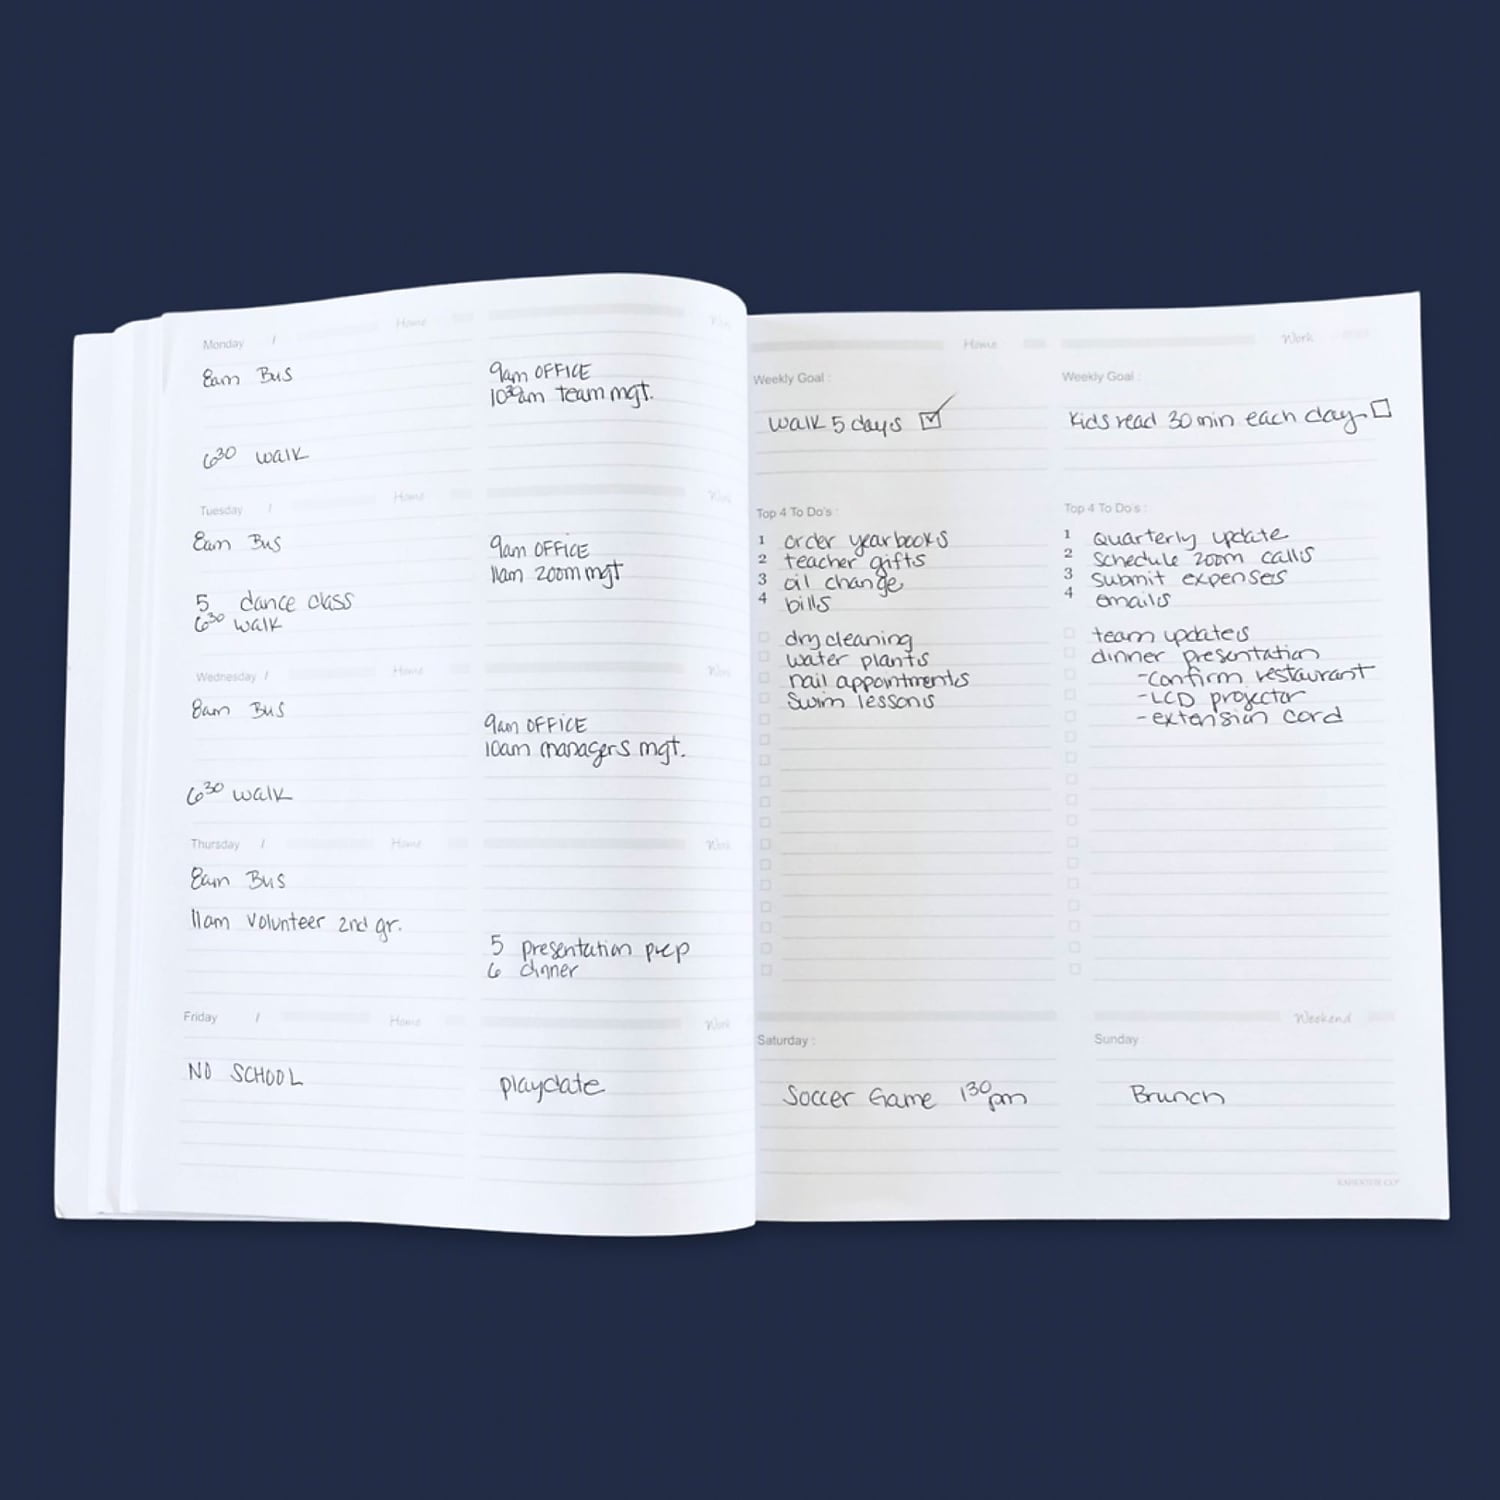 Monday / Home Work
8am Bus
9am OFFICE
10³⁰am team mgt.
6³⁰ walk
Tuesday / Home Work
8am Bus
9am OFFICE
11am zoom mgt
5 dance class
6³⁰ walk
Wednesday / Home Work
8am Bus
9am OFFICE
10am managers mgt.
6³⁰ walk
Thursday / Home Work
8am Bus
11am volunteer 2nd gr.
5 presentation prep
6 dinner
Friday / Home Work
NO SCHOOL
playdate
Home
Weekly Goal :
walk 5 days ☑
Top 4 To Do's :
1 order yearbooks
2 teacher gifts
3 oil change
4 bills
dry cleaning
water plants
nail appointments
swim lessons
Work
Weekly Goal :
Kids read 30 min each day ☐
Top 4 To Do's :
1 quarterly update
2 schedule zoom calls
3 submit expenses
4 emails
team updates
dinner presentation
-confirm restaurant
-LCD projector
-extension cord
Weekend
Saturday :
Soccer Game 1³⁰pm
Sunday
Brunch